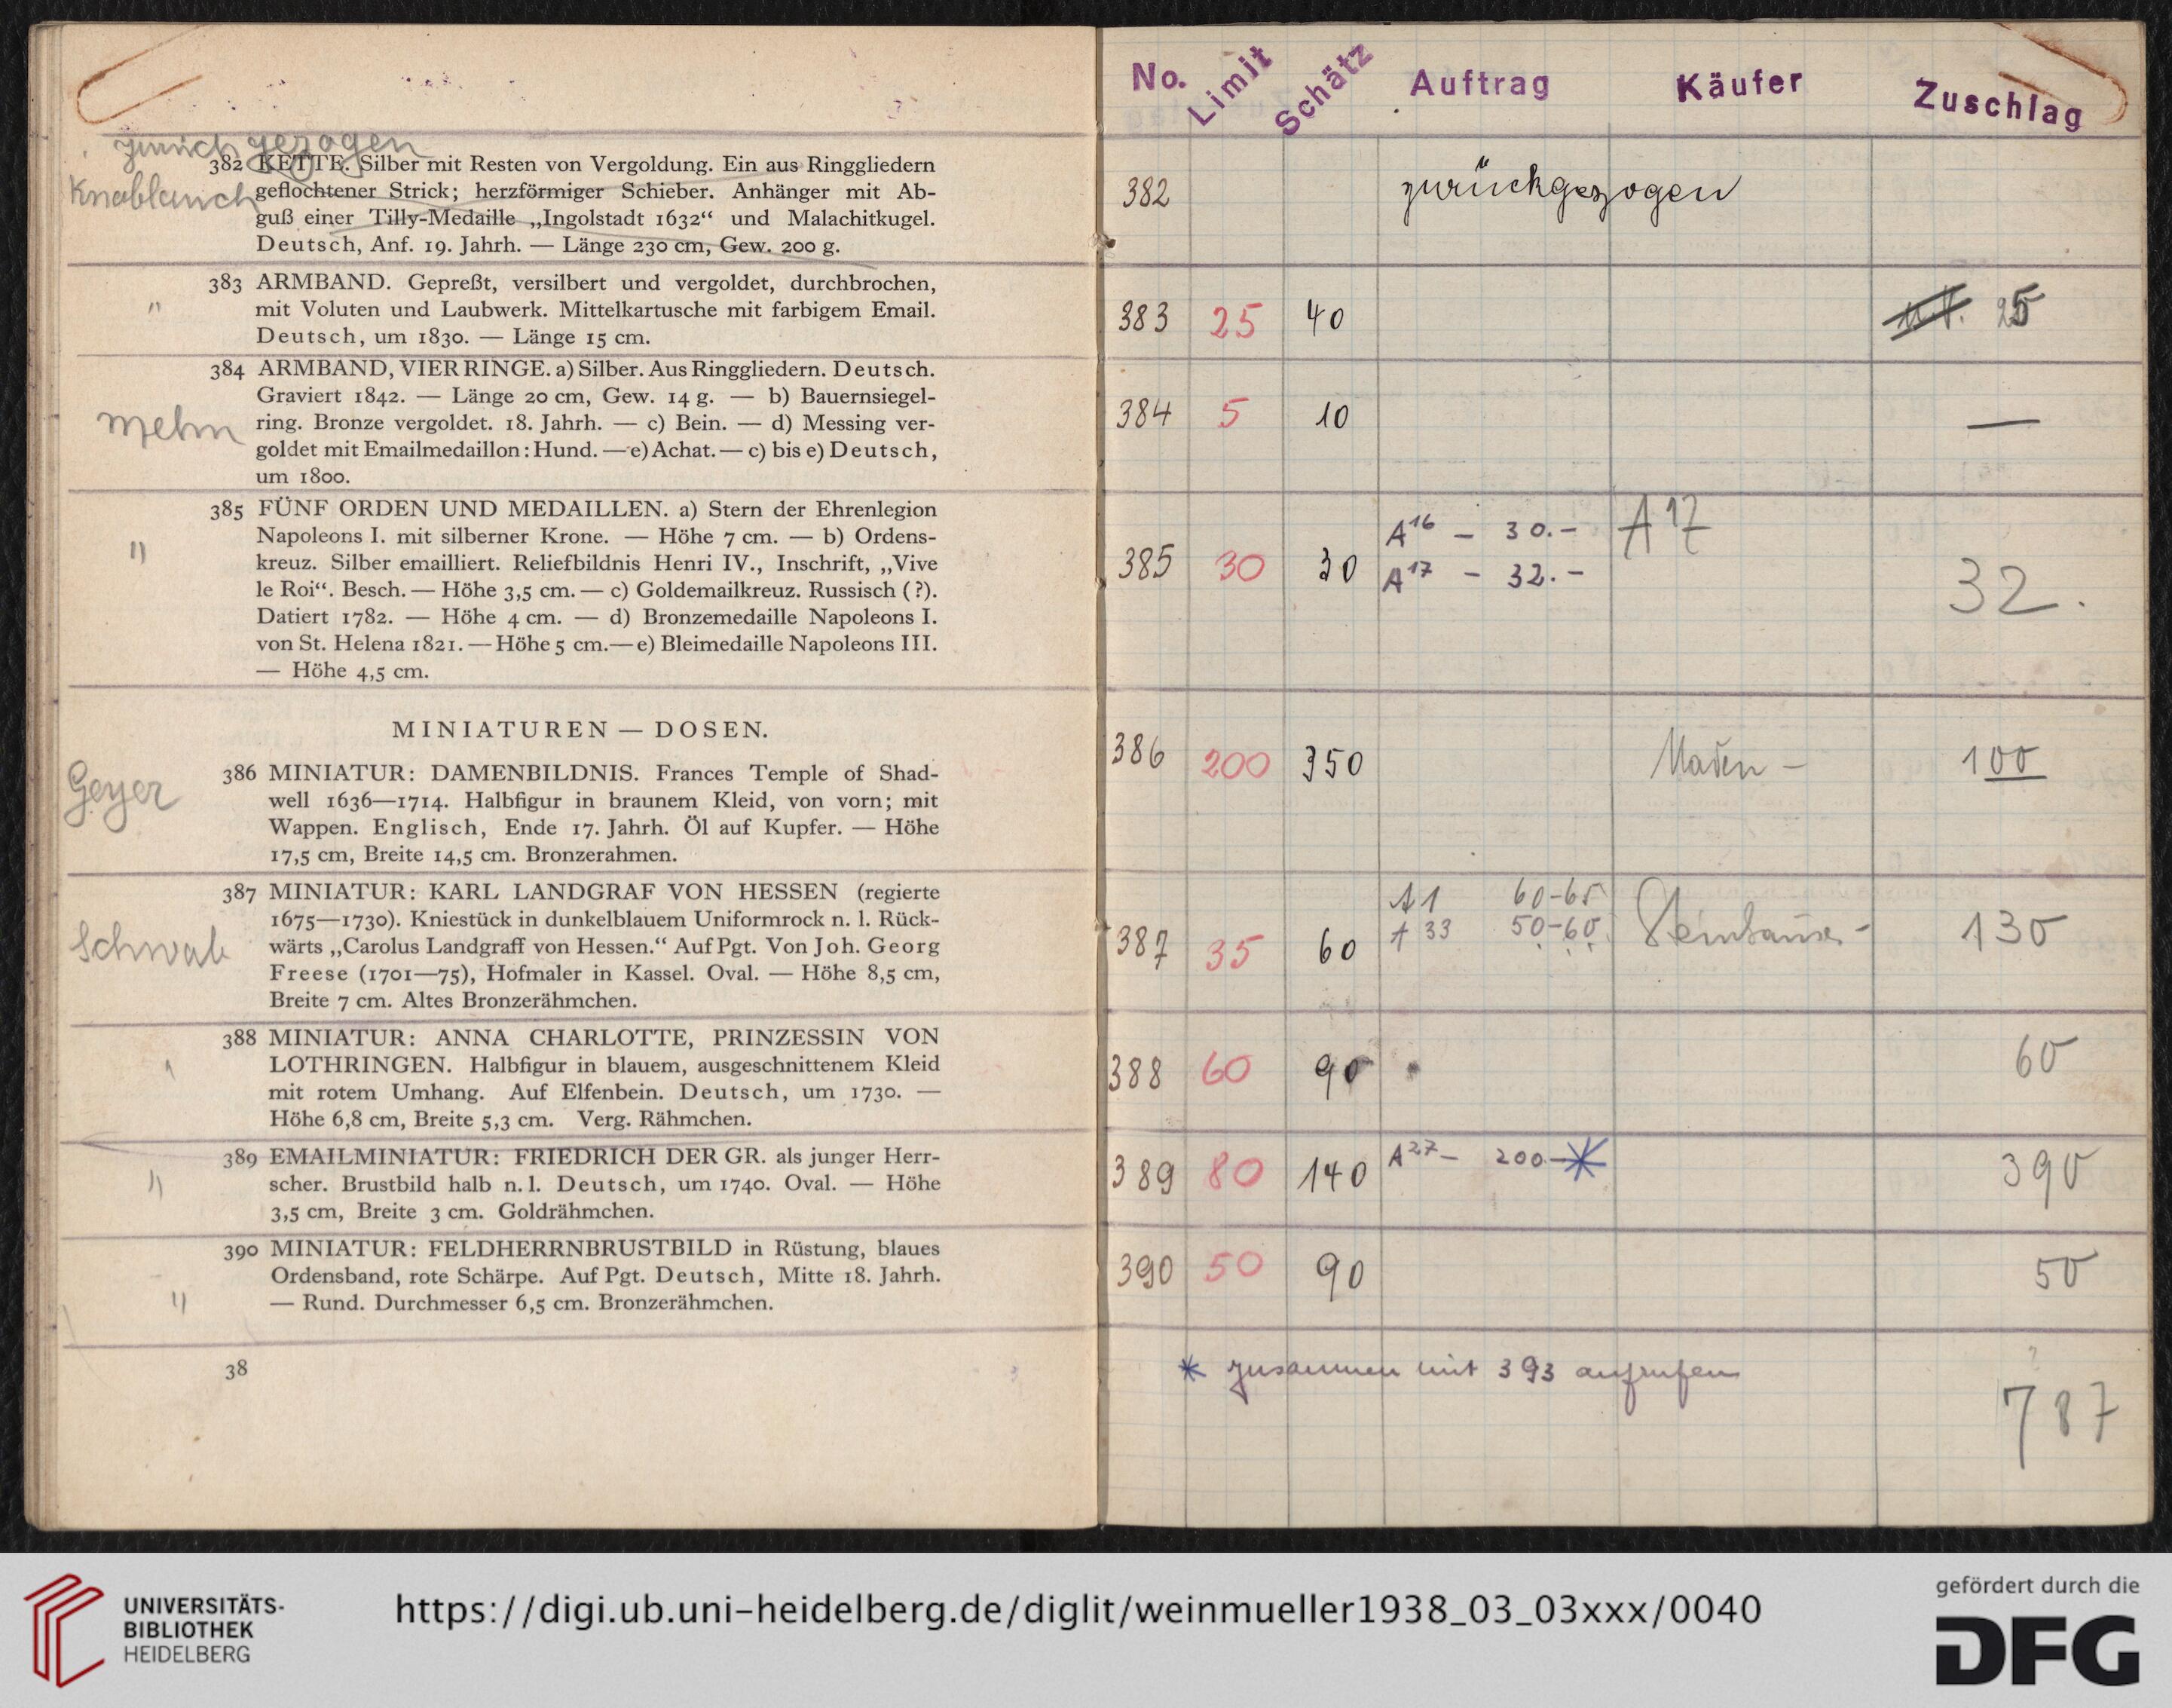 zurückgezogen
382 KETTE. Silber mit Resten von Vergoldung. Ein aus Ringgliedern
Knoblauch
geflochtener Strick; herzförmiger Schieber. Anhänger mit Ab-
guß einer Tilly-Medaille „Ingolstadt 1632“ und Malachitkugel.
Deutsch, Anf. 19. Jahrh. — Länge 230 cm, Gew. 200 g.
383 ARMBAND. Gepreßt, versilbert und vergoldet, durchbrochen,
" mit Voluten und Laubwerk. Mittelkartusche mit farbigem Email.
Deutsch, um 1830. — Länge 15 cm.
384 ARMBAND, VIER RINGE. a) Silber. Aus Ringgliedern. Deutsch.
Graviert 1842. — Länge 20 cm, Gew. 14 g. — b) Bauernsiegel-
ring. Bronze vergoldet. 18. Jahrh. — c) Bein. — d) Messing ver-
goldet mit Emailmedaillon: Hund. — e) Achat. — c) bis e) Deutsch,
um 1800.
385 FÜNF ORDEN UND MEDAILLEN. a) Stern der Ehrenlegion
" Napoleons I. mit silberner Krone. — Höhe 7 cm. — b) Ordens-
kreuz. Silber emailliert. Reliefbildnis Henri IV., Inschrift, „Vive
le Roi“. Besch. — Höhe 3,5 cm. — c) Goldemailkreuz. Russisch (?).
Datiert 1782. — Höhe 4 cm. — d) Bronzemedaille Napoleons I.
von St. Helena 1821. — Höhe 5 cm. — e) Bleimedaille Napoleons III.
— Höhe 4,5 cm.
MINIATUREN — DOSEN.
386 MINIATUR: DAMENBILDNIS. Frances Temple of Shad-
Geyer
well 1636—1714. Halbfigur in braunem Kleid, von vorn; mit
Wappen. Englisch, Ende 17. Jahrh. Öl auf Kupfer. — Höhe
17,5 cm, Breite 14,5 cm. Bronzerahmen.
387 MINIATUR: KARL LANDGRAF VON HESSEN (regierte
1675—1730). Kniestück in dunkelblauem Uniformrock n. l. Rück-
Schwab
wärts „Carolus Landgraff von Hessen.“ Auf Pgt. Von Joh. Georg
Freese (1701—75), Hofmaler in Kassel. Oval. — Höhe 8,5 cm,
Breite 7 cm. Altes Bronzerähmchen.
388 MINIATUR: ANNA CHARLOTTE, PRINZESSIN VON
LOTHRINGEN. Halbfigur in blauem, ausgeschnittenem Kleid
mit rotem Umhang. Auf Elfenbein. Deutsch, um 1730. —
Höhe 6,8 cm, Breite 5,3 cm. Verg. Rähmchen.
389 EMAILMINIATUR: FRIEDRICH DER GR. als junger Herr-
" scher. Brustbild halb n. l. Deutsch, um 1740. Oval. — Höhe
3,5 cm, Breite 3 cm. Goldrähmchen.
390 MINIATUR: FELDHERRNBRUSTBILD in Rüstung, blaues
Ordensband, rote Schärpe. Auf Pgt. Deutsch, Mitte 18. Jahrh.
" — Rund. Durchmesser 6,5 cm. Bronzerähmchen.
38
No. Limit Schätz Auftrag Käufer Zuschlag
382 zurückgezogen
383 25 40 25
384 5 10 —
385 30 30 A16 – 30.– A17 32.
A17 – 32.–
386 200 350 100
387 35 60 A1 60-65 130
A 33 50-60
388 60 90 60
389 80 140 A27– 200–* 390
390 50 90 50
* zusammen mit 393 aufrufen
787
UNIVERSITÄTS-
BIBLIOTHEK
HEIDELBERG
https://digi.ub.uni-heidelberg.de/diglit/weinmueller1938_03_03xxx/0040
gefördert durch die
DFG